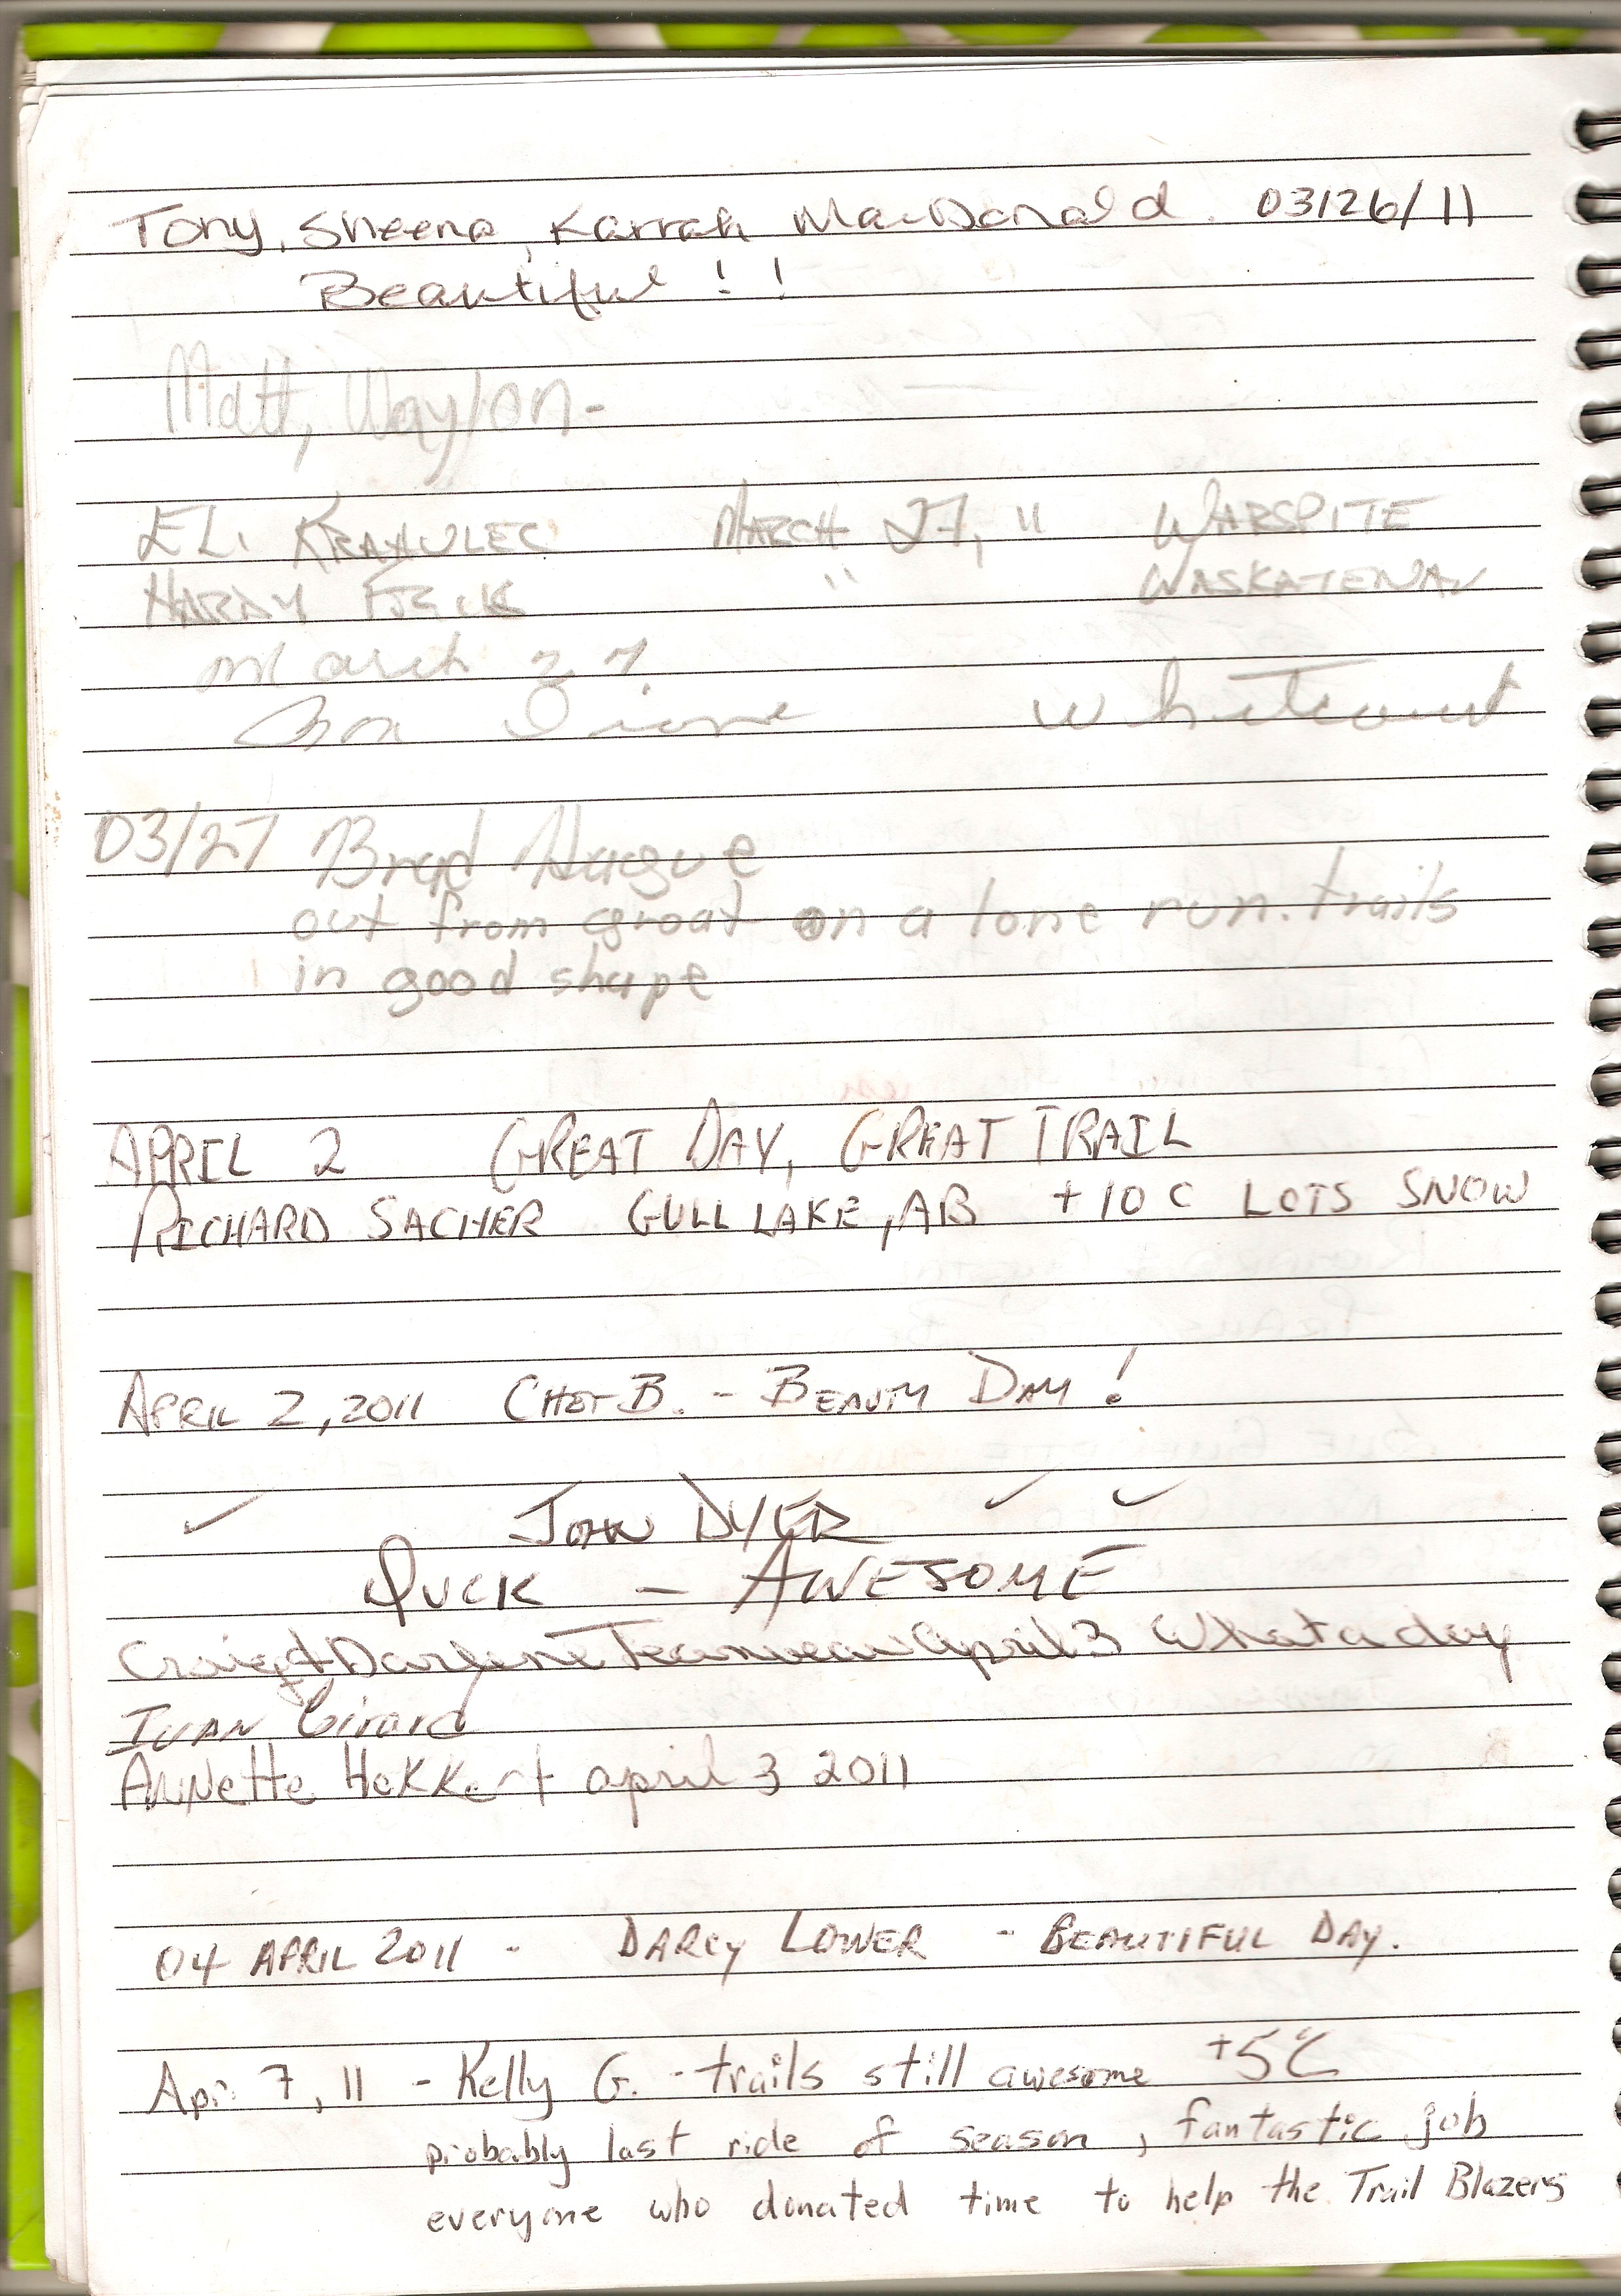 Tony, Sheena, Karrah MacDonald. 03/26/11
Beautiful!!
Matt, Waylon-
ELI KRAHULEC MARCH 27, 11 WARSPITE
HARDY " WASKATENAU
March 27. Whitecourt
03/27 Brad Hague
out from groat on a lone run. trails
in good shape
APRIL 2 GREAT DAY, GREAT TRAIL
RICHARD SACHER GULL LAKE, AB +10 C LOTS SNOW
APRIL 2, 2011 CHET B. - BEAUTY DAY!
✓ JOHN DYER ✓ ✓
PUCK - AWESOME
Craig & Darlene April 3 What a day
IVAN Girard
ANNette Hekkert april 3 2011
04 APRIL 2011 - DARCY LOWER - BEAUTIFUL DAY.
Apr. 7, 11 - Kelly G. - trails still awesome +5°C
probably last ride of season, fantastic job
everyone who donated time to help the Trail Blazers